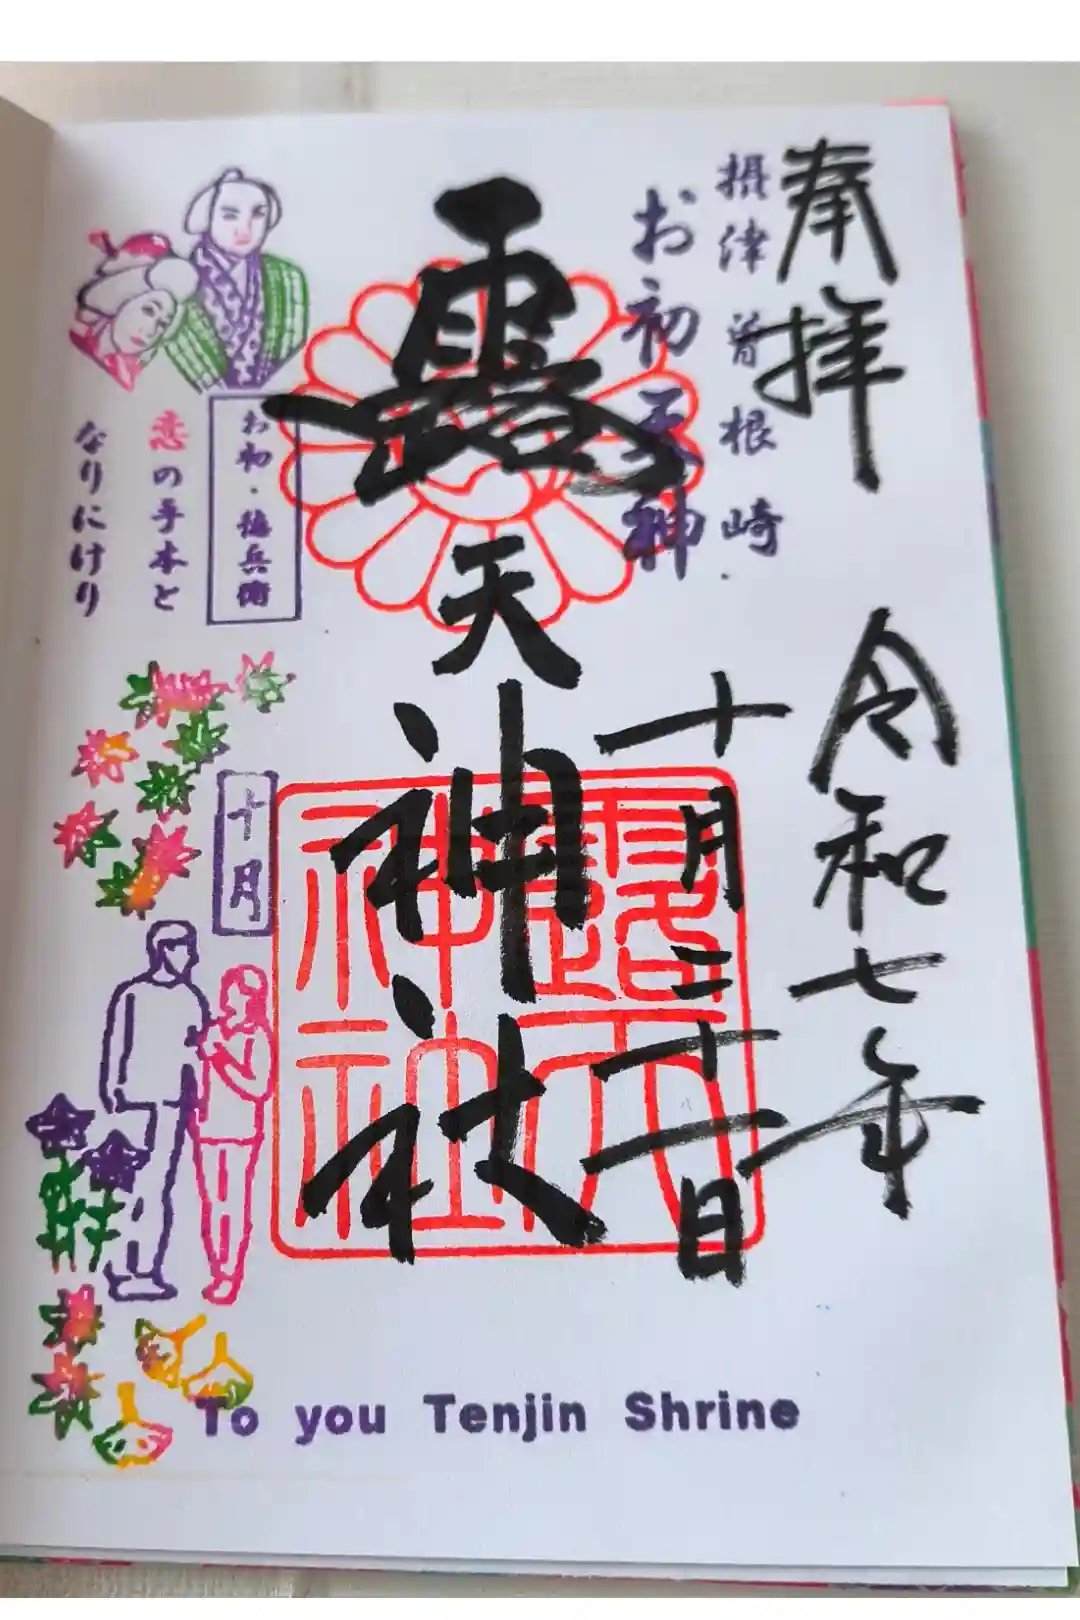 奉拝
令和七年
摂津曽根崎
お初天神
十月二十二日
露天神社
露天
神社
お初・徳兵衛
恋の手本と
なりにけり
十月
To you Tenjin Shrine